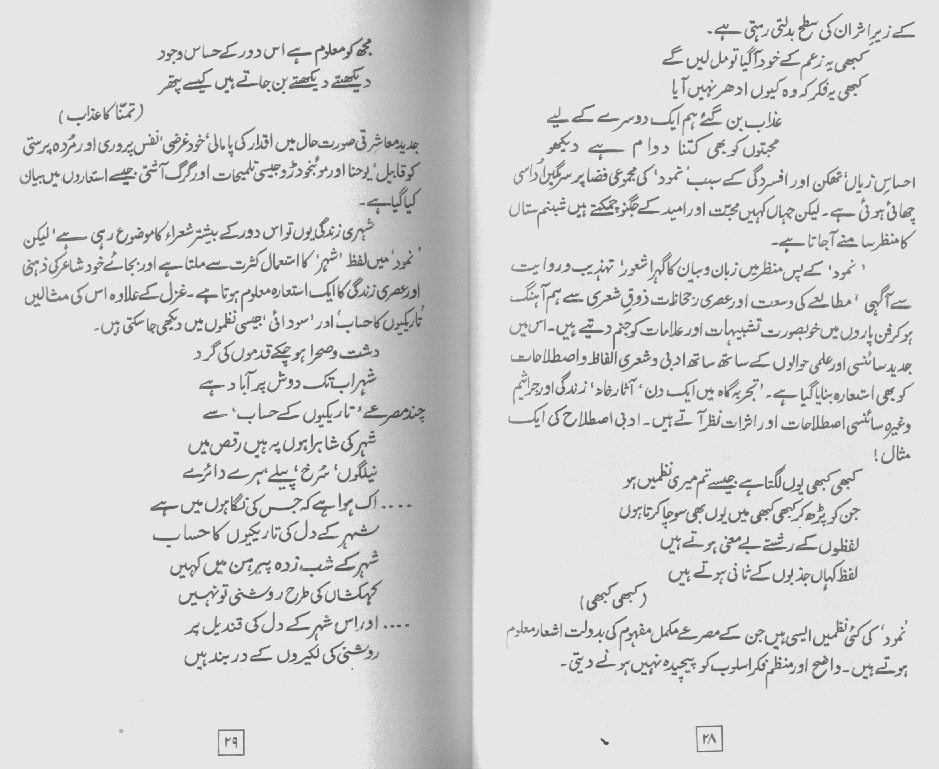 کے زیرِ اثر ان کی سطح بدلتی رہتی ہے۔
کبھی یہ زعم کے خود آ گیا تو مل لیں گے
کبھی یہ فکر کہ وہ کیوں ادھر نہیں آیا
عذاب بن گئے ہم ایک دوسرے کے لیے
محبتوں کو بھی کتنا دوام ہے دیکھو
احساسِ زیاں، تھکن اور افسردگی کے سبب، نمود، کی مجموعی فضا پر سرمگیں اُداسی
چھائی ہوئی ہے۔ لیکن جہاں کہیں محبت اور امید کے جگنو چمکتے ہیں شبنمستاں
کا منظر سامنے آ جاتا ہے۔
'نمود' کے پس منظر میں زبان و بیان کا گہرا شعور، تہذیب و روایت
سے آگہی، مطالعے کی وسعت اور عصری رجحانات ذوقِ شعری سے ہم آہنگ
ہو کر فن پاروں میں خوبصورت تشبیہات اور علامات کو جنم دیتے ہیں۔ اس میں
جدید سائنسی اور علمی حوالوں کے ساتھ ساتھ ادبی و شعری الفاظ و اصطلاحات
کو بھی استعارہ بنایا گیا ہے۔ 'تجربہ گاہ میں ایک دن، آثار خانہ، زندگی اور جراثیم
وغیرہ سائنسی اصطلاحات اور اثرات نظر آتے ہیں۔ ادبی اصطلاح کی ایک
مثال!
کبھی کبھی یوں لگتا ہے جیسے تم میری نظمیں ہو
جن کو پڑھ کر کبھی کبھی میں یوں بھی سوچا کرتا ہوں
لفظوں کے رشتے بے معنی ہوتے ہیں
لفظ کہاں جذبوں کے ثانی ہوتے ہیں
(کبھی کبھی)
'نمود' کی کئی نظمیں ایسی ہیں جن کے مصرعے مکمل مفہوم کی بدولت اشعار معلوم
ہوتے ہیں۔ واضح اور منظم فکر اسلوب کو پیچیدہ نہیں ہونے دیتی۔
۲۸
مجھ کو معلوم ہے اس دور کے حساس وجود
دیکھتے دیکھتے بن جاتے ہیں کیسے پتھر
(تمنّا کا عذاب)
جدید معاشرتی صورت حال میں اقدار کی پامالی، خود غرضی، نفس پروری اور مُردہ پرستی
کو قابیل، یوحنا اور موئنجودڑو جیسی تلمیحات اور گرگ آشتی جیسے استعاروں میں بیان
کیا گیا ہے۔
شہری زندگی یوں تو اس دور کے بیشتر شعراء کا موضوع رہی ہے، لیکن
'نمود' میں لفظ 'شہر' کا استعمال کثرت سے ملتا ہے اور بجائے خود شاعر کی ذہنی
اور عصری زندگی کا ایک استعارہ معلوم ہوتا ہے۔ غزل کے علاوہ اس کی مثالیں
'تاریکیوں کا حساب' اور 'سودائی' جیسی نظموں میں دیکھی جا سکتی ہیں۔
دشت و صحرا ہو چکے قدموں کی گرد
شہر اب تک دوش پر آباد ہے
چند مصرعے 'تاریکیوں کے حساب' سے
شہر کی شاہراہوں پہ ہیں رقص میں
نیلگوں، سُرخ، پیلے، ہرے دائرے
.... اک ہوا ہے کہ جس کی نگاہوں میں ہے
شہر کے دل کی تاریکیوں کا حساب
شہر کے شب زدہ پیرہن میں کہیں
کہکشاں کی طرح روشنی تو نہیں
.... اور اس شہر کے دل کی قندیل پر
روشنی کی لکیروں کے در بند ہیں
۲۹